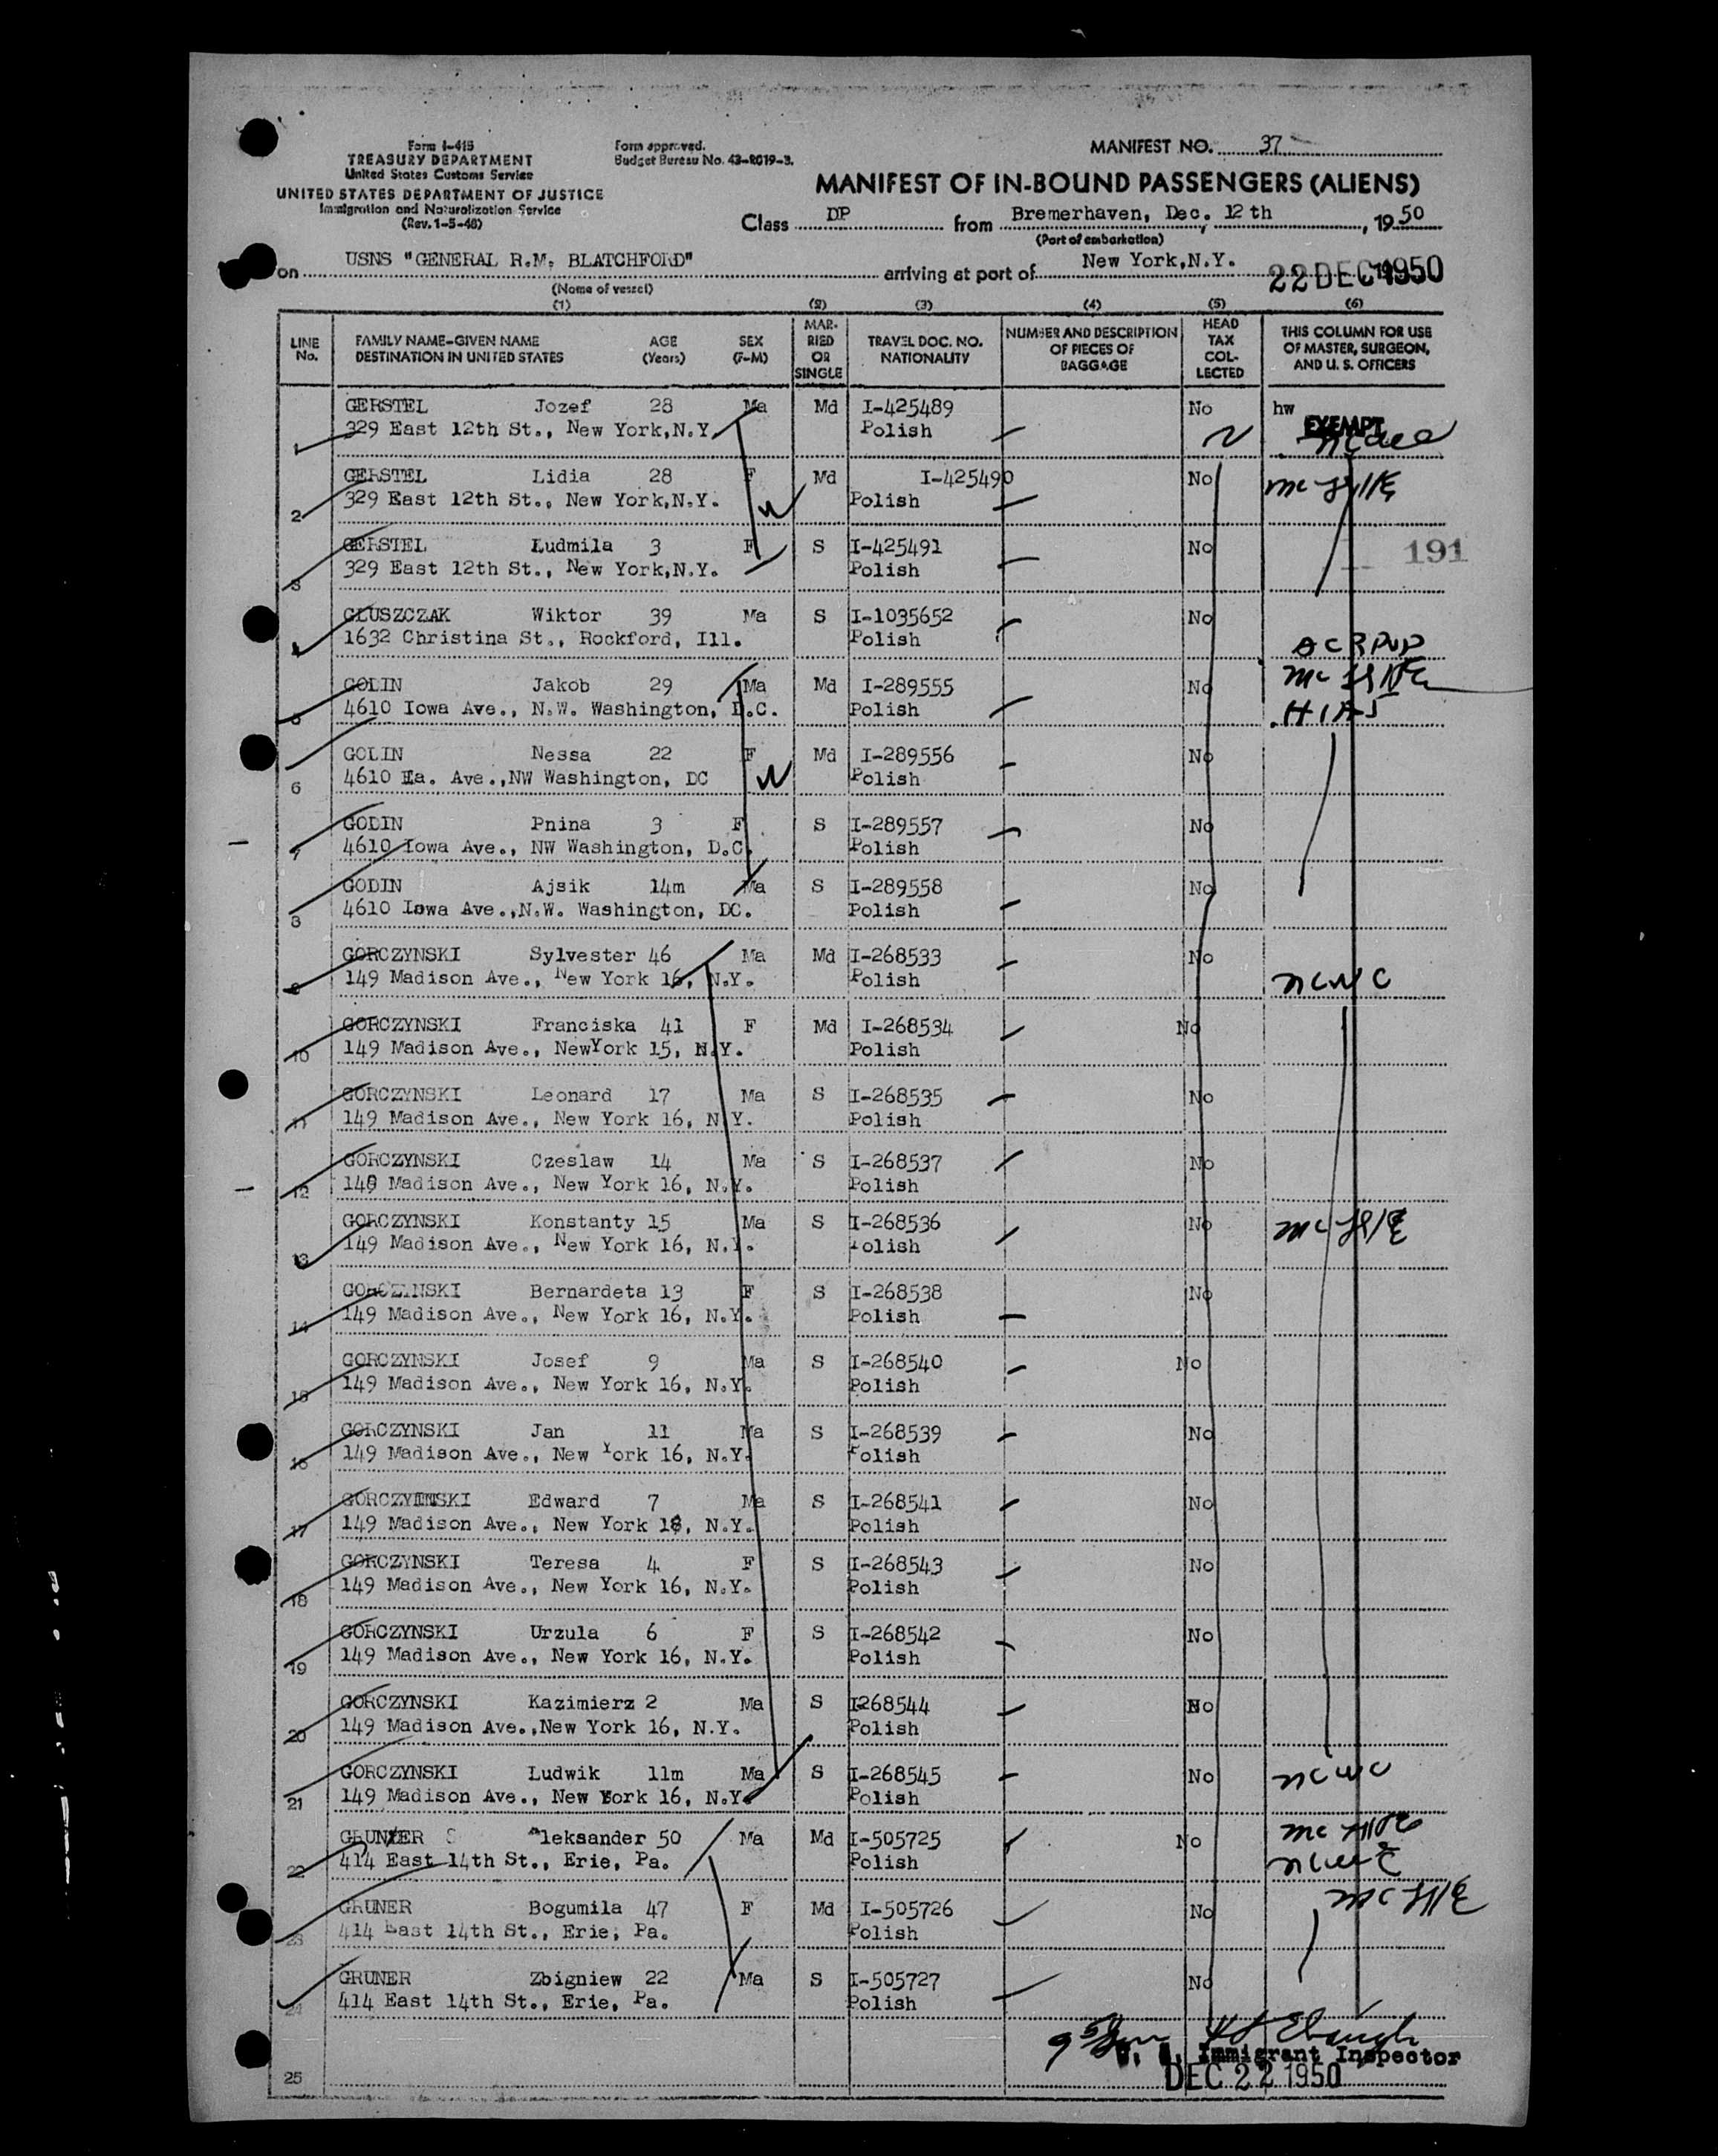 Form I-415
TREASURY DEPARTMENT
United States Customs Service
UNITED STATES DEPARTMENT OF JUSTICE
Immigration and Naturalization Service
(Rev. 1-5-48)
Form approved.
Budget Bureau No. 43-R019-3.
MANIFEST NO. 37
MANIFEST OF IN-BOUND PASSENGERS (ALIENS)
Class DP from Bremerhaven, Dec. 12th, 1950
(Port of embarkation)
on USNS "GENERAL R.M. BLATCHFORD" arriving at port of New York,N.Y. 22 DEC 1950
(Name of vessel)
(1) (2) (3) (4) (5) (6)
LINE No. FAMILY NAME-GIVEN NAME DESTINATION IN UNITED STATES AGE (Years) SEX (F-M) MARRIED OR SINGLE TRAVEL DOC. NO. NATIONALITY NUMBER AND DESCRIPTION OF PIECES OF BAGGAGE HEAD TAX COLLECTED THIS COLUMN FOR USE OF MASTER, SURGEON, AND U. S. OFFICERS
GERSTEL Jozef 28 Ma Md I-425489 No hw
1 329 East 12th St., New York,N.Y. Polish EXEMPT
GERSTEL Lidia 28 F Md I-425490 No
2 329 East 12th St., New York,N.Y. Polish
GERSTEL Ludmila 3 F S I-425491 No 191
3 329 East 12th St., New York,N.Y. Polish
GLUSZCZAK Wiktor 39 Ma S I-1035652 No
4 1632 Christina St., Rockford, Ill. Polish
GOLIN Jakob 29 Ma Md I-289555 No
5 4610 Iowa Ave., N.W. Washington, D.C. Polish HIAS
GOLIN Nessa 22 F Md I-289556 No
6 4610 Ia. Ave.,NW Washington, DC Polish
GOLIN Pnina 3 F S I-289557 No
7 4610 Iowa Ave., NW Washington, D.C. Polish
GOLIN Ajsik 14m Ma S I-289558 No
8 4610 Iowa Ave.,N.W. Washington, DC. Polish
GORCZYNSKI Sylvester 46 Ma Md I-268533 No
9 149 Madison Ave., New York 16, N.Y. Polish NCWC
GORCZYNSKI Franciska 41 F Md I-268534 No
10 149 Madison Ave., NewYork 15, N.Y. Polish
GORCZYNSKI Leonard 17 Ma S I-268535 No
11 149 Madison Ave., New York 16, N.Y. Polish
GORCZYNSKI Czeslaw 14 Ma S I-268537 No
12 149 Madison Ave., New York 16, N.Y. Polish
GORCZYNSKI Konstanty 15 Ma S I-268536 No
13 149 Madison Ave., New York 16, N.Y. Polish
GORCZYNSKI Bernardeta 13 F S I-268538 No
14 149 Madison Ave., New York 16, N.Y. Polish
GORCZYNSKI Josef 9 Ma S I-268540 No
15 149 Madison Ave., New York 16, N.Y. Polish
GORCZYNSKI Jan 11 Ma S I-268539 No
16 149 Madison Ave., New York 16, N.Y. Polish
GORCZYNSKI Edward 7 Ma S I-268541 No
17 149 Madison Ave., New York 16, N.Y. Polish
GORCZYNSKI Teresa 4 F S I-268543 No
18 149 Madison Ave., New York 16, N.Y. Polish
GORCZYNSKI Urzula 6 F S I-268542 No
19 149 Madison Ave., New York 16, N.Y. Polish
GORCZYNSKI Kazimierz 2 Ma S I268544 No
20 149 Madison Ave.,New York 16, N.Y. Polish
GORCZYNSKI Ludwik 11m Ma S I-268545 No NCWC
21 149 Madison Ave., New York 16, N.Y. Polish
GRUNER Aleksander 50 Ma Md I-505725 No
22 414 East 14th St., Erie, Pa. Polish
GRUNER Bogumila 47 F Md I-505726 No
23 414 East 14th St., Erie, Pa. Polish
GRUNER Zbigniew 22 Ma S I-505727 No
24 414 East 14th St., Erie, Pa. Polish
U. S. Immigrant Inspector
25 DEC 22 1950